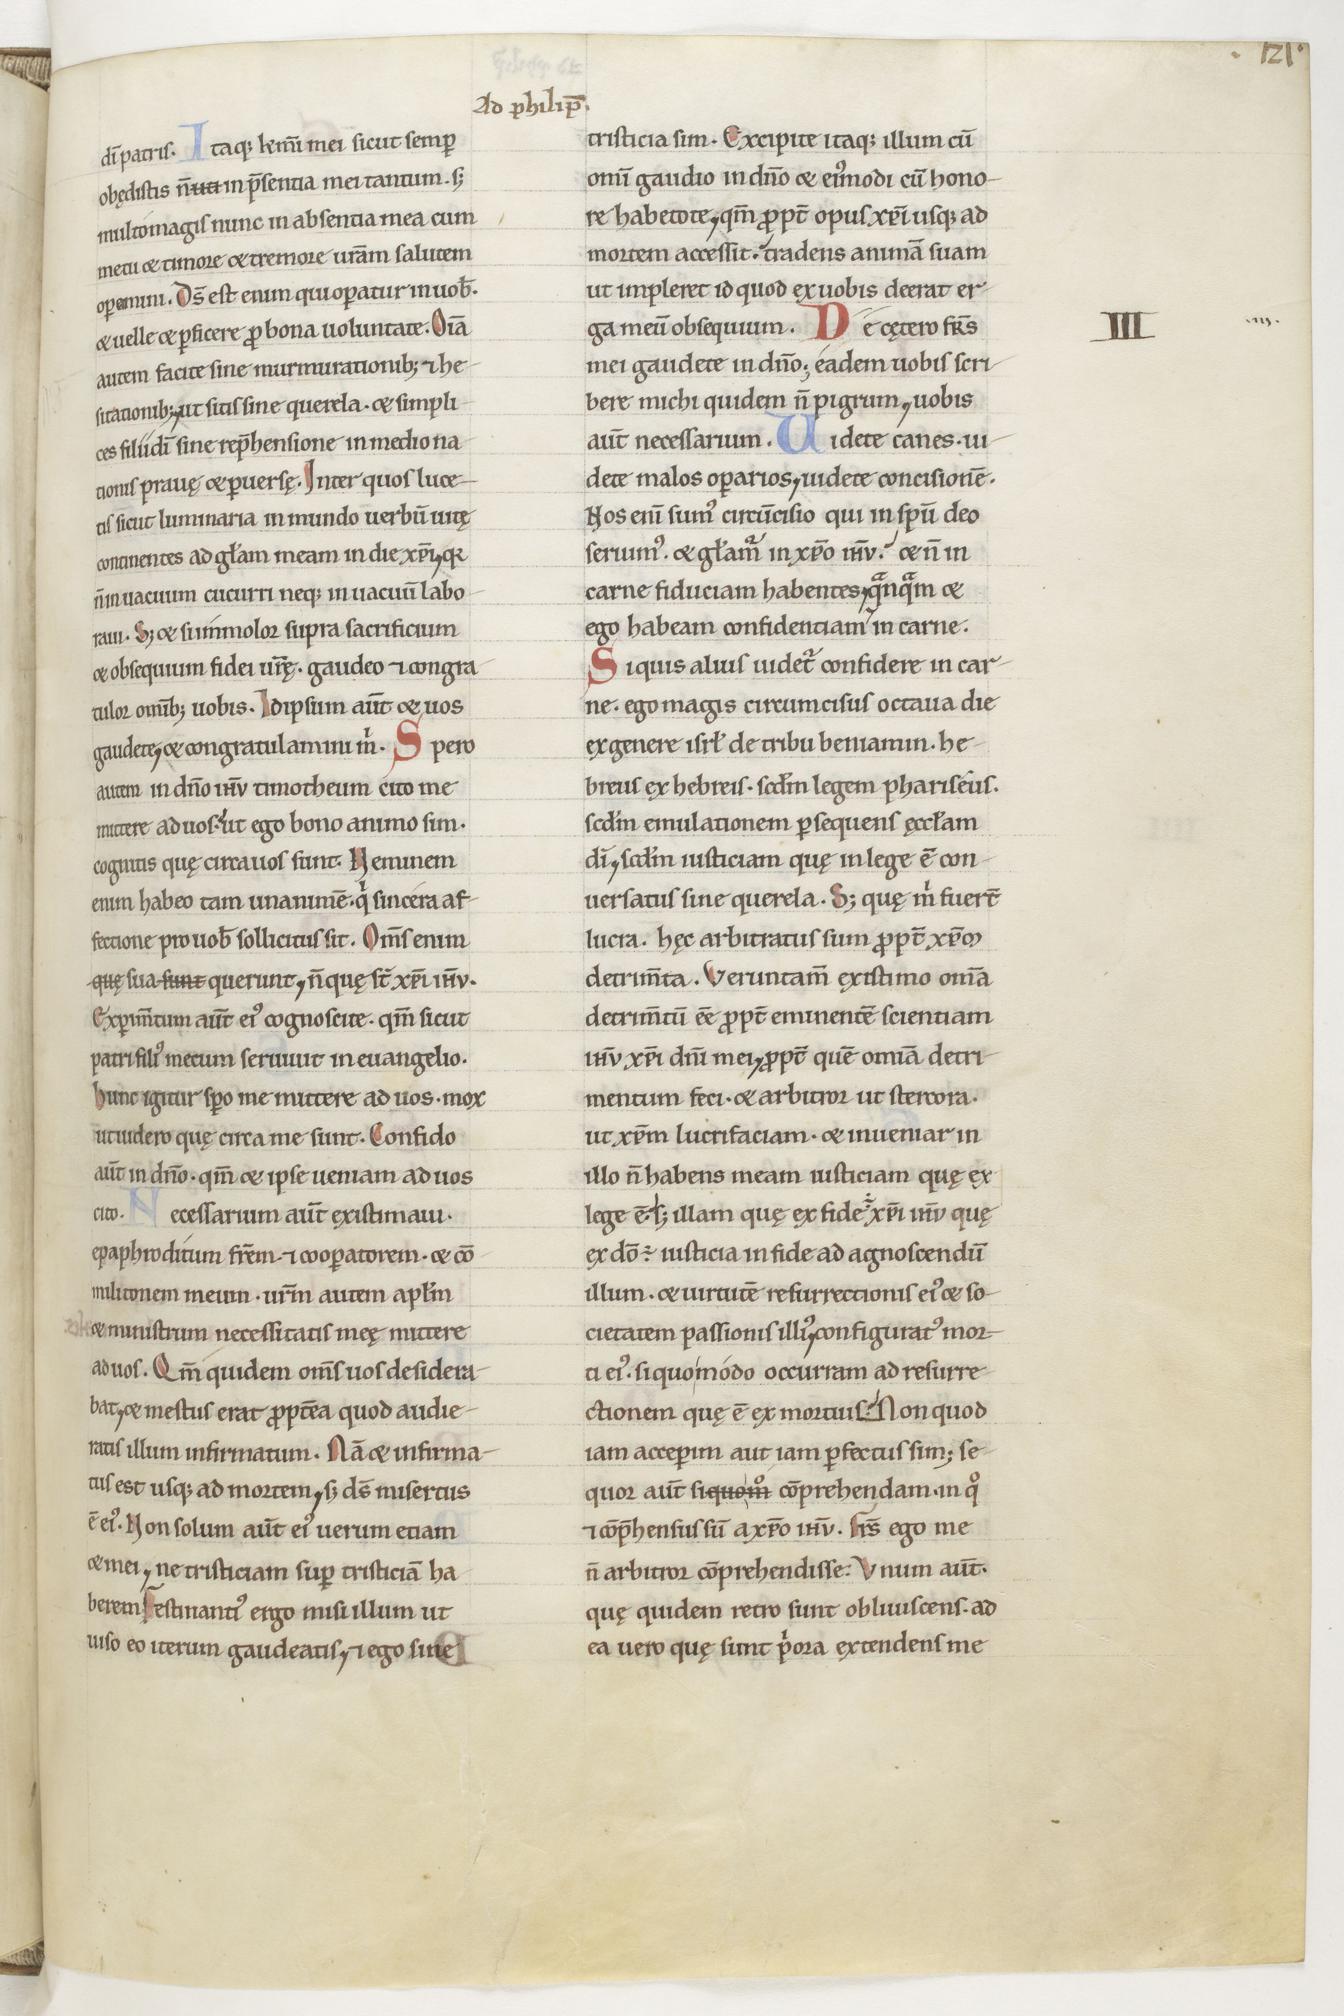 121
Ad philip̄.
dī patris. Itaq; kem̄i mei sicut semꝑ
obędistis n̄ uti in p̄sentia mei tantum. s;
multomagis nunc in absentia mea cum
metu & timore & tremore ur̄am salutem
oꝑamini. D̄s est enim qui oꝑatur in uob̄.
& uelle & ꝑficere ꝓ bona uoluntate. Oīa
autem facite sine murmurationib; ⁊ he-
sitationib; ut sitis sine querela. & simpli-
ces filii dī sine rep̄hensione in medio na-
tionis prauę & ꝑuersę. Inter quos luce-
tis sicut luminaria in mundo uerbū uitę
continentes ad gl̄am meam in die xp̄i, qꝛ
n̄ in uacuum cucurri neq; in uacuū labo-
raui. S; & si immolor supra sacrificium
& obsequium fidei ur̄ę. gaudeo ⁊ congra-
tulor om̄ib; uobis. Idipsum aūt & uos
gaudete, & congratulamini m̄. Spero
autem in dn̄o ih̄u timotheum cito me
mittere ad uos. ut ego bono animo sim.
cognitis quę circa uos sunt. Neminem
enim habeo tam unanimē. q̇ sincera af-
fectione pro uob̄ sollicitus sit. Om̄s enim
quę sua sunt querunt, n̄ quę st̄ xp̄i ih̄u.
Exꝑim̄tum aūt ei᾽ cognoscite. qm̄ sicut
patri fili᾽ mecum seruiuit in euangelio.
hunc igitur sꝑo me mittere ad uos. mox
ut uidero quę circa me sunt. Confido
aūt in dn̄o. qm̄ & ipse ueniam ad uos
cito. Necessarium aūt ęxistimaui.
epaphroditum fr̄em. ⁊ cooꝑatorem. & cō-
militonem meum. ur̄m autem apl̄m
& ministrum necessitatis meę mittere
ad uos. Qm̄ quidem om̄s uos desidera-
bat, & mestus erat ꝓpt̄ea quod audie-
ratis illum infirmatum. Nā & infirma-
tus est usq; ad mortem, s; d̄s misertus
ē ei᾽. Non solum aūt ei᾽ uerum etiam
& mei, ne tristiciam suꝑ tristiciā ha-
berem. Festinanti᾽ ergo misi illum ut
uiso eo iterum gaudeatis, ⁊ ego sine
tristicia sim. Excipite itaq; illum cū
omī gaudio in dn̄o & ei᾽modi cū hono-
re habetote, qm̄ ꝓpt̄ opus xp̄i usq; ad
mortem accessit. tradens animā suam
ut impleret id quod ex uobis deerat er-
ga meū obsequium. De cętero fr̄s
III
.iii.
mei gaudete in dn̄o; eadem uobis scri-
bere michi quidem n̄ pigrum, uobis
aūt necessarium. Uidete canes. ui-
dete malos oꝑarios, uidete concisionē.
Nos enī sum᾽ circūcisio qui in sp̄u deo
seruim᾽. & gl̄am̃ in xp̄o ih̄u. & n̄ in
carne fiduciam habentes, qͣnqͣm &
ego habeam confidentiam in carne.
Siquis alius uidet̃ confidere in car-
ne. ego magis circumcisus octaua die
ex genere isrl̄ de tribu beniamin. he-
breus ex hebreis. scd̄m legem phariseus.
scd̄m emulationem ꝑsequens ęccl̄am
dī, scd̄m iusticiam quę in lege ē con-
uersatus sine querela. S; quę m̄ fuer̄t
lucra. hęc arbitratus sum ꝓpt̄ xp̄m
detrim̄ta. Veruntam̄ existimo om̄ia
detrim̄tū ēē ꝓpt̄ eminentē scientiam
ih̄u xp̄i dn̄i mei, ꝓpt̄ quē omīa detri-
mentum feci. & arbitror ut stercora.
ut xp̄m lucrifaciam. & inueniar in
illo n̄ habens meam iusticiam quę ex
lege ē. s; illam quę ex fide xp̄i ih̄u quę
ex dō. iusticia in fide ad agnoscendū
illum. & uirtutē resurrectionis ei᾽ & so-
cietatem passionis illi᾽, configurat᾽ mor-
ti ei᾽. si quo modo occurram ad resurre-
ctionem quę ē ex mortuis. Non quod
iam acceperim aut iam ꝑfectus sim; se-
quor aūt si quom̊ cōprehendam. in q̊
⁊ cōp̄hensus sū a xp̄o ih̄u. Fr̄s ego me
n̄ arbitror cōprehendisse. Vnum aūt.
quę quidem retro sunt obliuiscens. ad
ea uero quę sunt p̓ora extendens me